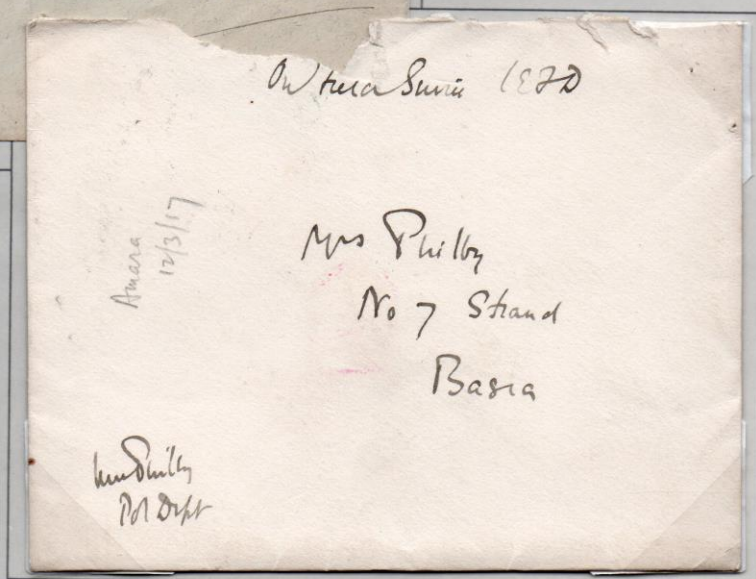 On Field Service IEFD
Amara
12/3/17
Mrs Philby
No 7 Strand
Basra
Philby
Pol Dept